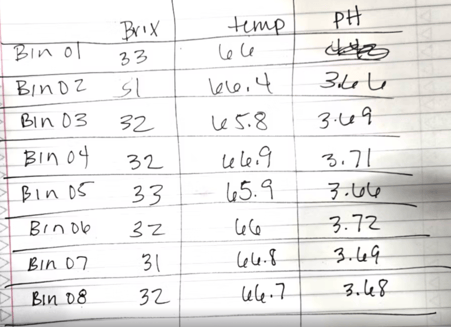 Brix temp PH
Bin 01 33 66
Bin 02 66.4 3.66
Bin 03 32 65.8 3.69
Bin 04 32 66.9 3.71
Bin 05 33 65.9 3.66
Bin 06 32 66 3.72
Bin 07 31 66.8 3.69
Bin 08 32 66.7 3.68